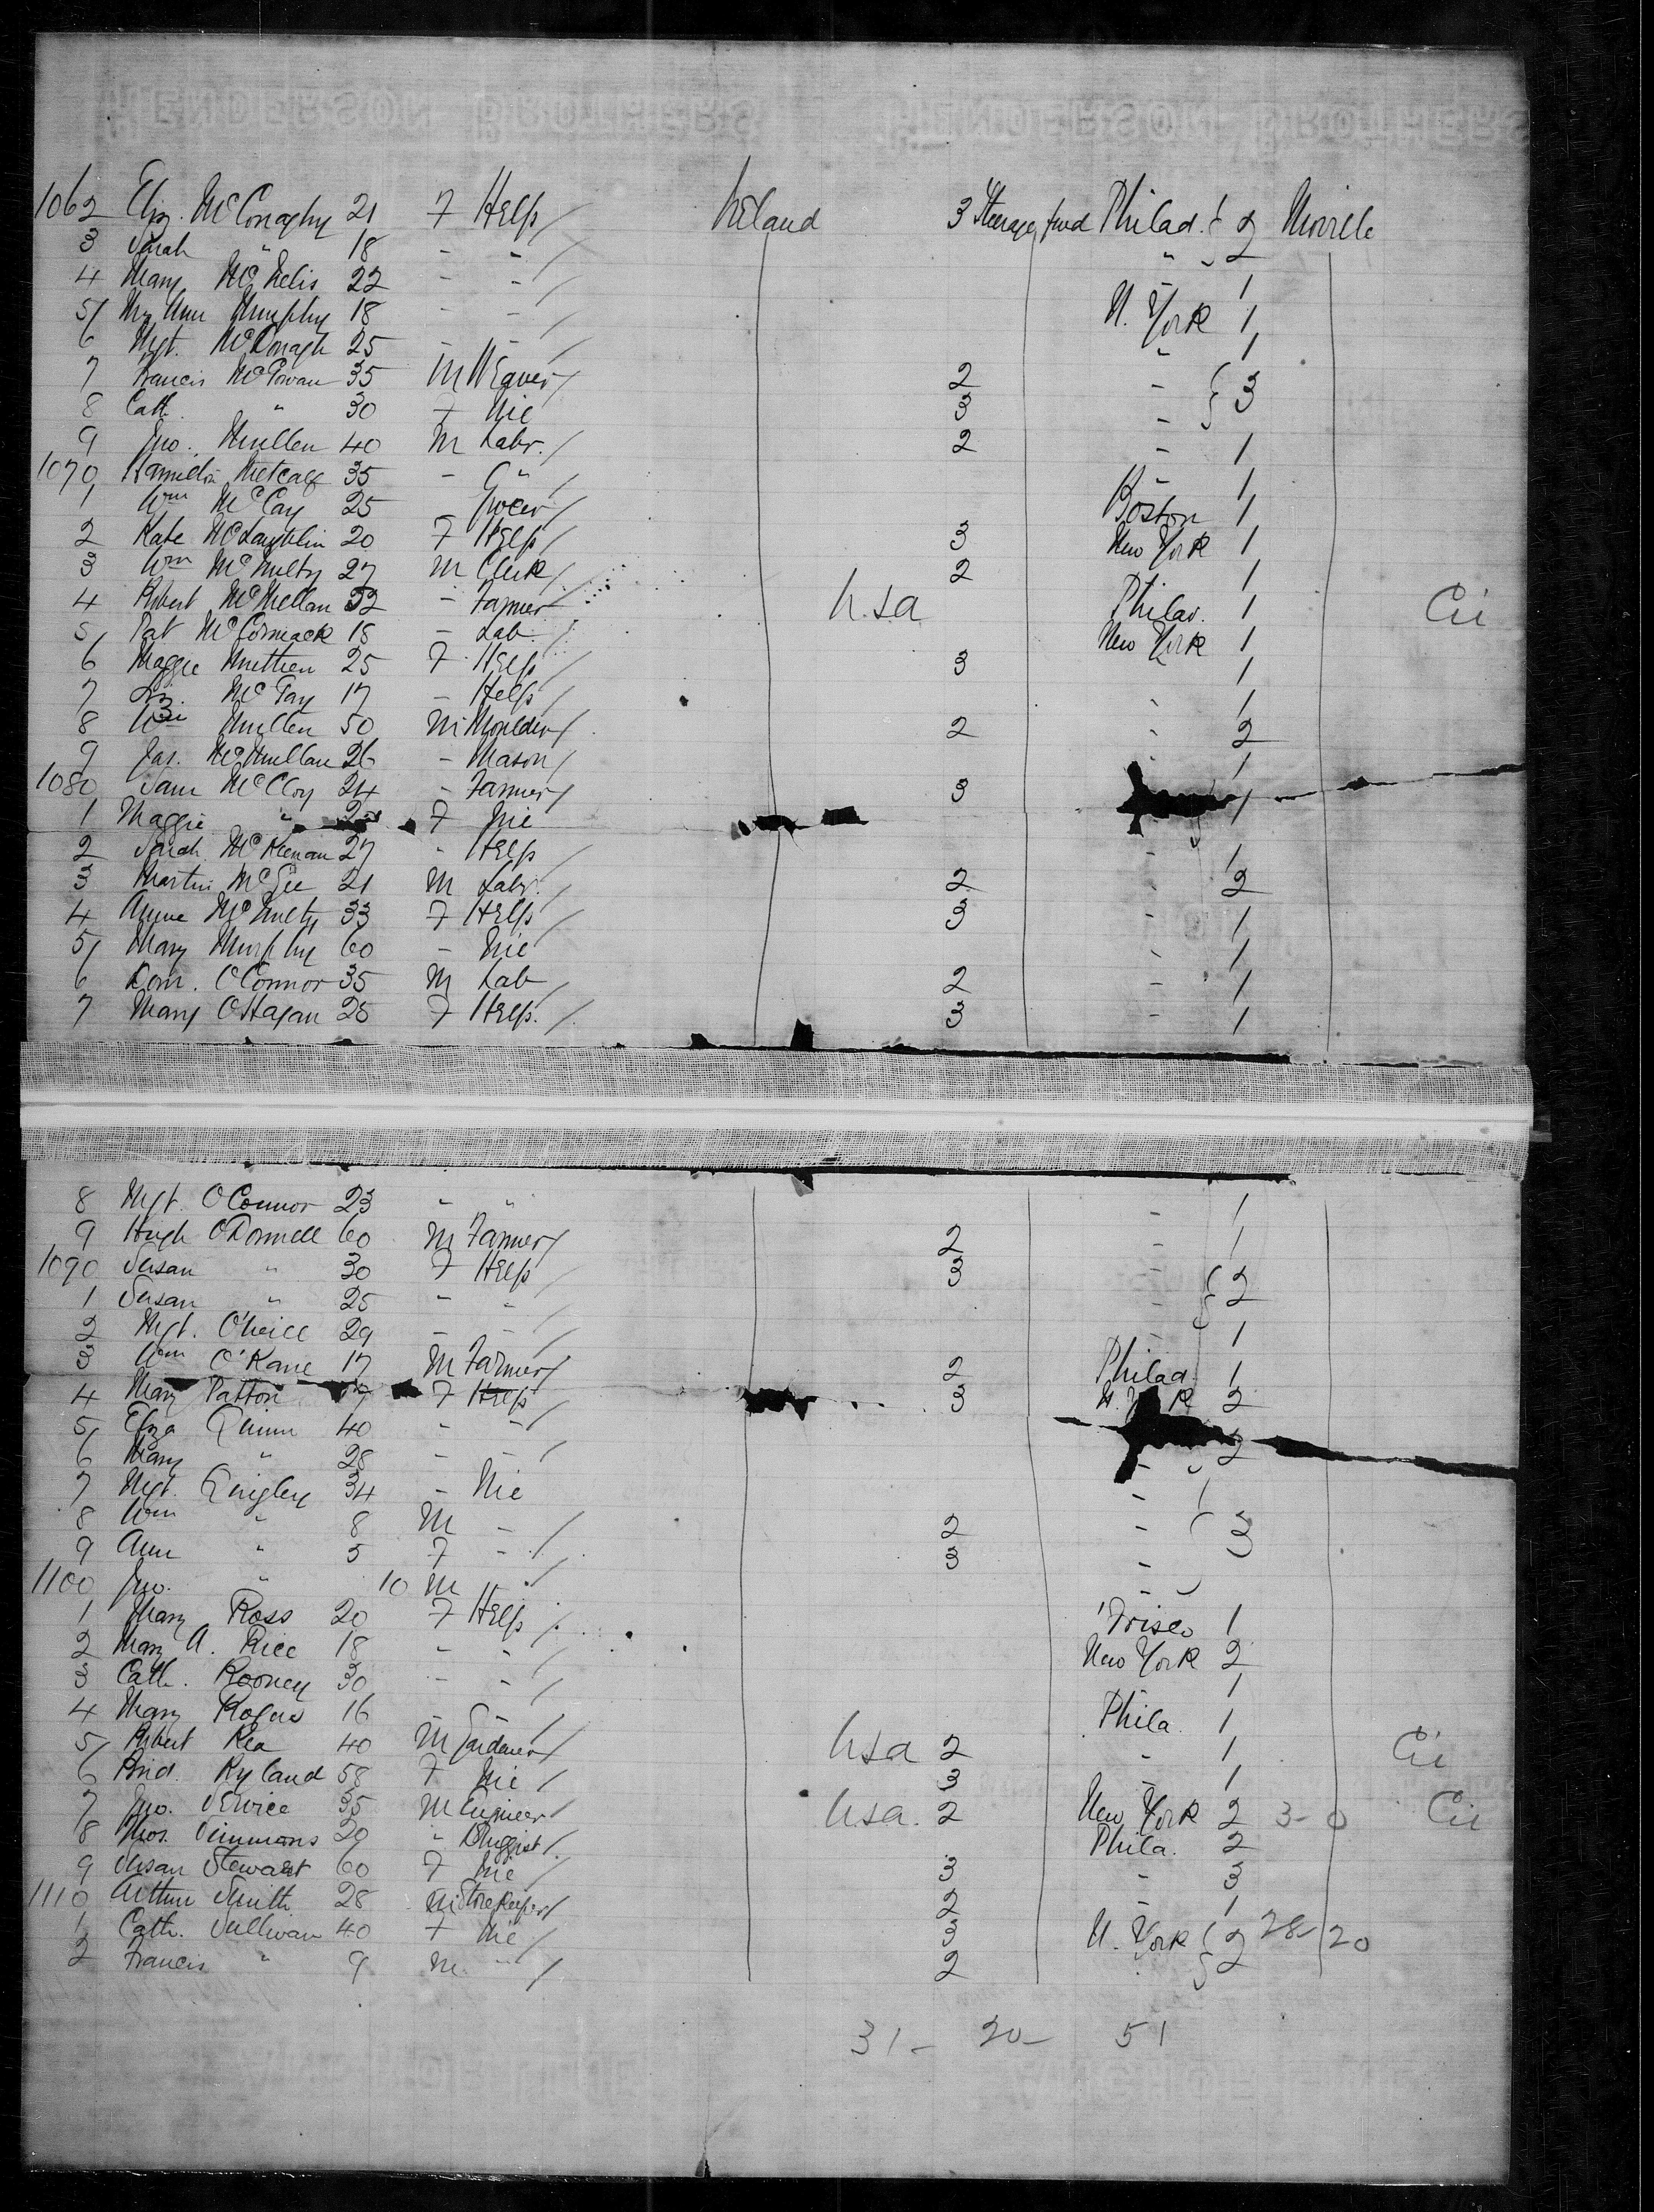 HENDERSON BROTHERS HENDERSON BROTHERS
1062 Eliz. McConaghy 21 F Help / Ireland 3 Steerage fwd Philad. { 2 Moville
3 Sarah " 18 - - / " } 2
4 Mary McNelis 22 - - / - 1
5/ My Ann Murphy 18 - - / N. York 1
6 Mgt. McDonagh 25 - - / " 1
7 Francis McGowan 35 M Weaver / 2 - { 3
8 Cath. " 30 F Nie 3 - }
9 Jno. Mullen 40 M Labr. / 2 - 1
1070 Hamilton Metcalf 35 - " / - 1
1 Wm McCay 25 Grocer / Boston 1
2 Kate McLaughlin 20 F Help / 3 New York 1
3 Wm McNulty 27 M Clerk / 2 1
4 Robert McMellan 32 - Farmer / Usa Philad. 1 Cii
5/ Pat McCormack 18 - Lab. / New York 1
6 Maggie 25 F Help / 3 1
7 Liz. McFay 17 - Help / 1
8 Wm Mullen 50 M Moulder / 2 - 2
9 Jas. McMullan 26 - Mason / 1
1080 Sam McCloy 24 - Farmer / 3 1
1 Maggie " F Nie
2 Sarah McKeenan 27 - Help / - 1
3 Martin McGee 21 M Labr. / 2 - 2
4 Annie McNulty 33 F Help / 3 - 1
5/ Mary Murphy 60 - Nie / - 1
6 Dom. O'Connor 35 M Lab / 2 - 1
7 Mary O'Hagan 28 F Help. / 3 - 1
8 Mgt. O'Connor 23 - " - 1
9 Hugh O'Donnell 60 M Farmer / 2 - 1
1090 Susan " 30 F Help / 3 - { 2
1 Susan " 25 - - / - }
2 Mgt. O'Neill 29 - - / 1
3 Wm O'Kane 17 M Farmer / 2 Philad. 1
4 Mary Patton F Help 3 N. York 2
5/ Eliza Quinn 40 - - /
6 Mary " 28 - - / - 2
7 Mgt. Quigley 34 - Nie - 1
8 Wm " 8 M - / 2 - { 3
9 Ann " 5 F - / 3 -
1100 Jno. " 10 M / - }
1 Mary Ross 20 F Help / 'Frisco 1
2 Mary A. Rice 18 - - / New York 2
3 Cath. Rooney 30 - - / 1
4 Mary Rogers 16 - - / Phila. 1
5/ Robert Rea 40 M Gardener / Usa 2 - 1 Cii
6 Brid. Ryland 58 F Nie / 3 - 1
7 Jno. Service 35 M Engineer / Usa. 2 New York 2 3-0 Cii
8 Thos. Simmons 29 " Druggist / Phila. 2
9 Susan Stewart 60 F Nie / 3 - 3
1110 Arthur Smith 28 M Storekeeper / 2 - 1
1 Cath. Sullivan 40 F Nie / 3 N. York { 2 28-20
2 Francis " 9 M " / 2 } 2
31- 20- 51